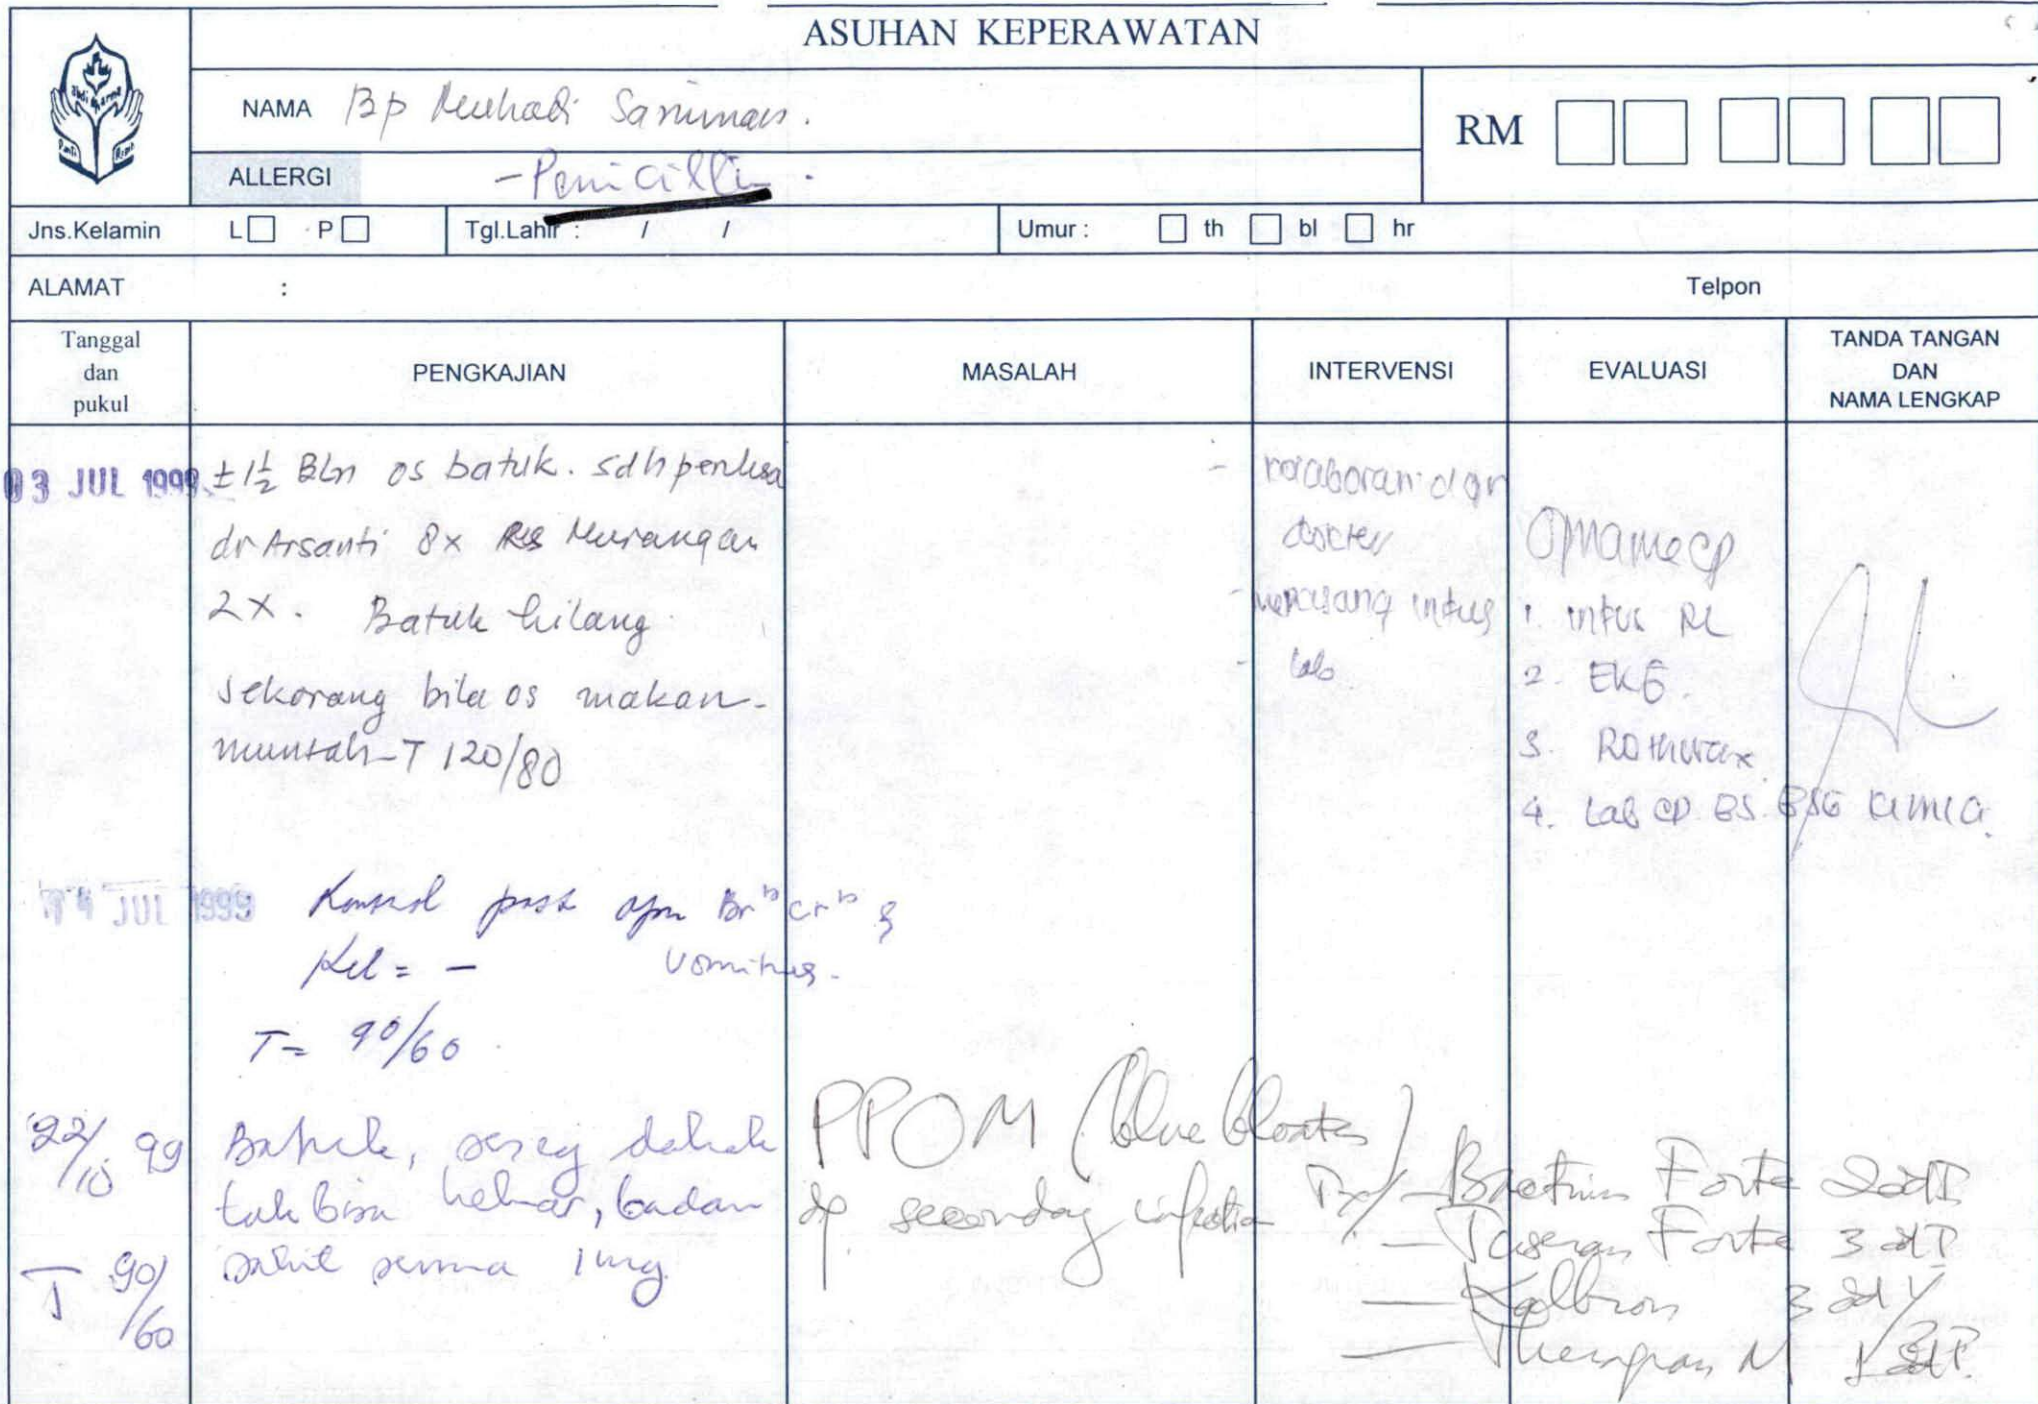 ASUHAN KEPERAWATAN
NAMA Bp Muhadi
ALLERGI - Penicillin.
RM
Jns.Kelamin L P Tgl.Lahir : / / Umur : th bl hr
ALAMAT : Telpon
Tanggal dan pukul
PENGKAJIAN
MASALAH
INTERVENSI
EVALUASI
TANDA TANGAN DAN NAMA LENGKAP
03 JUL 1999
± 1 1/2 Bln os batuk. sdh periksa
dr Arsanti 8x RS Murangan
2x. Batuk hilang
sekarang bila os makan -
muntah - T 120/80
- kolaborasi dgn
dokter
- memasang infus
- lab
Opname
1. infus RL
2. EKG.
3. Ro thorax
4. Lab BS. BSG kimia.
JUL 1999
Kontrol post opn Br Cr
Kel = - vomitus.
T = 90/60
22/10 99
T 90/60
Batuk, dahak
tak bisa keluar, badan
sakit semua 1 mg
PPOM (blue bloater)
secondary infection
- Bactrim Forte 2ddI
- Forte 3ddI
- Kalbron 3dd
- Theragran M 1ddI.